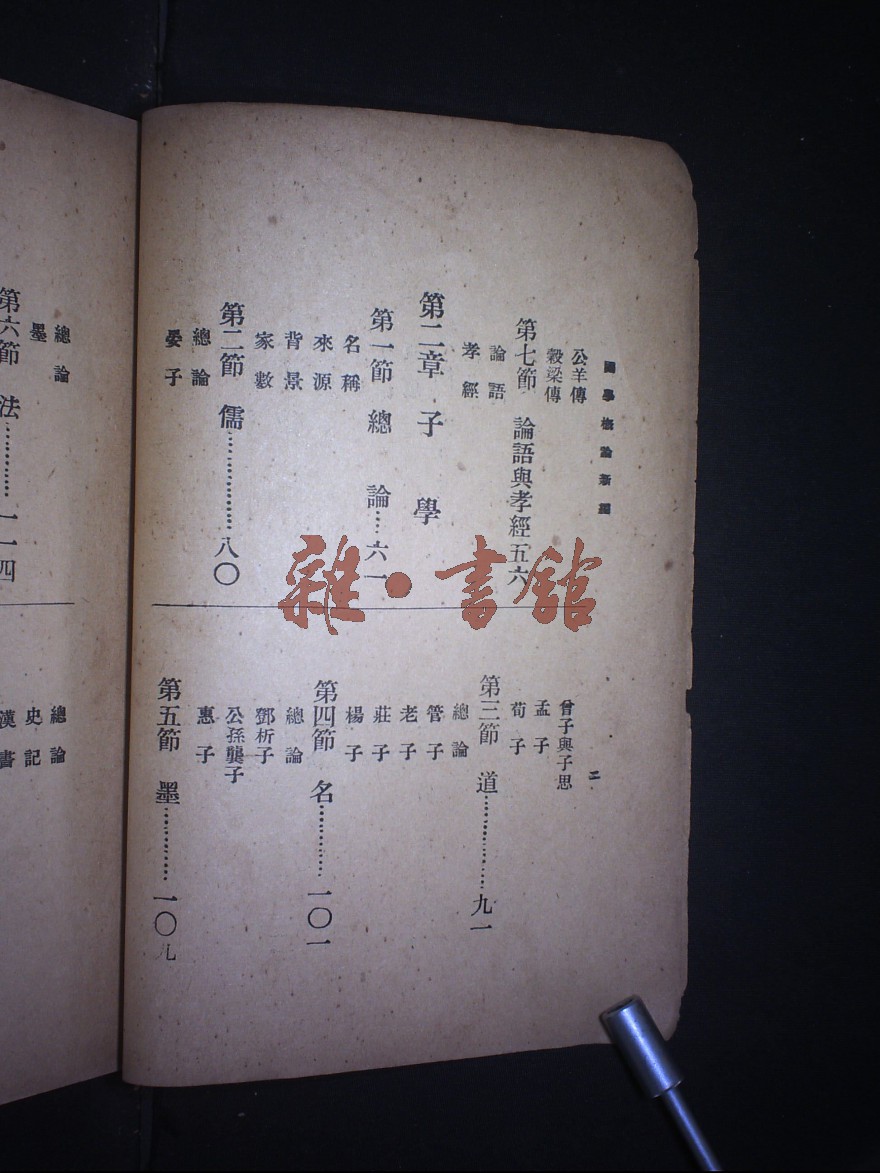 國學概論新編
公羊傳
穀梁傳
第七節 論語與孝經 五六
論語
孝經
第二章 子學
第一節 總論…… 六一
名稱
來源
背景
家數
第二節 儒……………… 八〇
總論
晏子
二
曾子與子思
孟子
荀子
第三節 道……………… 九一
總論
管子
老子
莊子
楊子
第四節 名…………… 一〇一
總論
鄧析子
公孫龔子
惠子
第五節 墨…………… 一〇九
雜·書館
總論
墨
第六節 法…………… 一一四
總論
史記
漢書